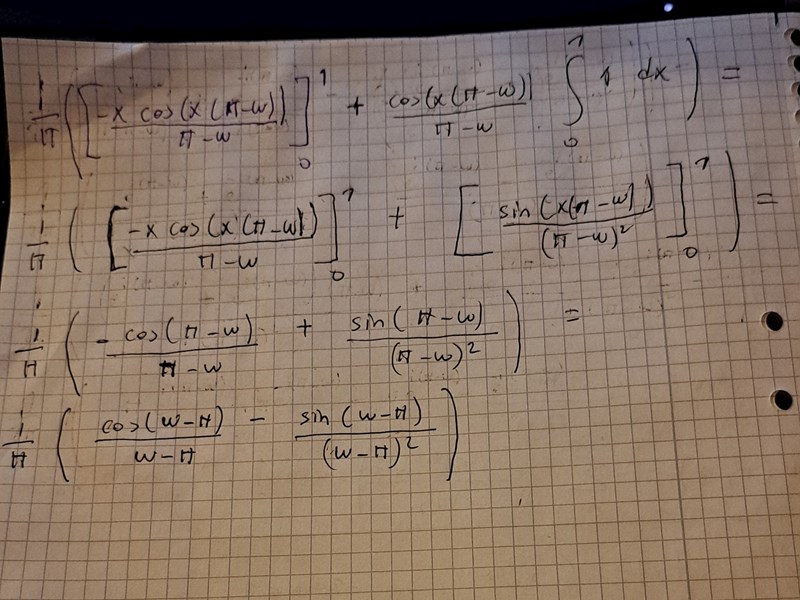 1/π ( [ -x cos(x(π-w)) / π-w ]₀¹ + cos(x(π-w)) / π-w ∫₀¹ 1 dx ) =
1/π ( [ -x cos(x(π-w)) / π-w ]₀¹ + [ sin(x(π-w)) / (π-w)² ]₀¹ ) =
1/π ( - cos(π-w) / π-w + sin(π-w) / (π-w)² ) =
1/π ( cos(w-π) / w-π - sin(w-π) / (w-π)² )